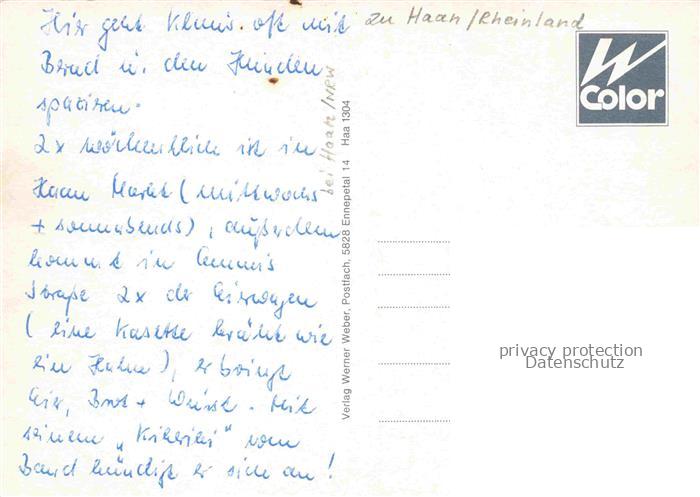 Hier geht Klaus oft mit
Bernd u. den Hunden
spazieren.
2x wöchentlich ist in
Haan Markt (mittwochs
+ sonnabends), außerdem
kommt in Ommis
Straße 2x der Eierwagen
(eine Kasette kräht wie
ein Hahn), er bringt
Eier, Brot + Wurst. Mit
seinem „Kikeriki" vom
Band kündigt er sich an!
zu Haan/Rheinland
bei Haan/NRW
Verlag Werner Weber, Postfach, 5828 Ennepetal 14 Haa 1304
W
Color
privacy protection
Datenschutz